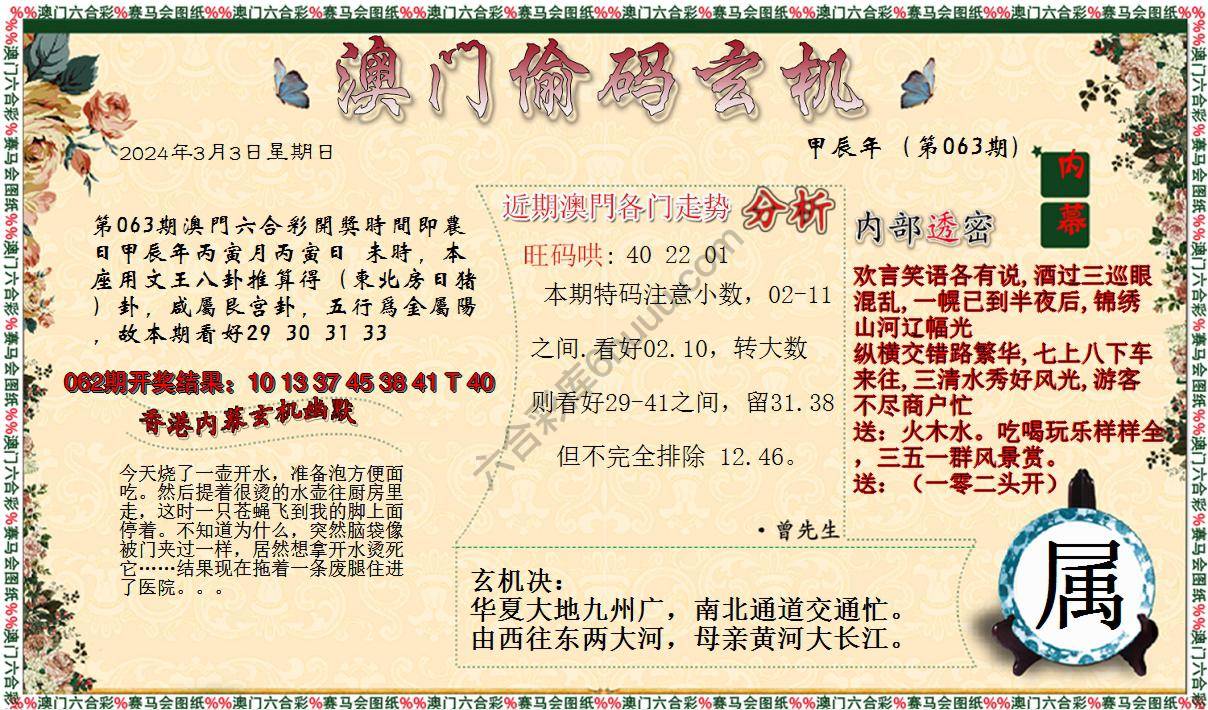 %%澳门六合彩%赛马会图纸%%澳门六合彩%赛马会图纸%%澳门六合彩%赛马会图纸%%澳门六合彩%赛马会图纸%%澳门六合彩%赛马会图纸%%澳门六合彩%赛马会图纸
澳门偷码玄机
2024年3月3日星期日
甲辰年（第063期）
内
幕
第063期澳門六合彩開獎時間即農
日甲辰年丙寅月丙寅日 未時，本
座用文王八卦推算得（東北房日猪
）卦，咸屬艮宫卦，五行爲金屬陽
，故本期看好29 30 31 33
062期开奖结果：10 13 37 45 38 41 T 40
香港内幕玄机幽默
今天烧了一壶开水，准备泡方便面
吃。然后提着很烫的水壶往厨房里
走，这时一只苍蝇飞到我的脚上面
停着。不知道为什么，突然脑袋像
被门夹过一样，居然想拿开水烫死
它……结果现在拖着一条废腿住进
了医院。。。
近期澳門各门走势 分析
旺码哄: 40 22 01
本期特码注意小数，02-11
之间.看好02.10，转大数
则看好29-41之间，留31.38
但不完全排除 12.46。
·曾先生
内部透密
欢言笑语各有说,酒过三巡眼
混乱,一幌已到半夜后,锦绣
山河辽幅光
纵横交错路繁华,七上八下车
来往,三清水秀好风光,游客
不尽商户忙
送：火木水。吃喝玩乐样样全
，三五一群风景赏。
送：（一零二头开）
玄机决：
华夏大地九州广，南北通道交通忙。
由西往东两大河，母亲黄河大长江。
属
%%澳门六合彩%赛马会图纸%%澳门六合彩%赛马会图纸%%澳门六合彩%赛马会图纸%%澳门六合彩%赛马会图纸%%澳门六合彩%赛马会图纸%%澳门六合彩%赛马会图纸